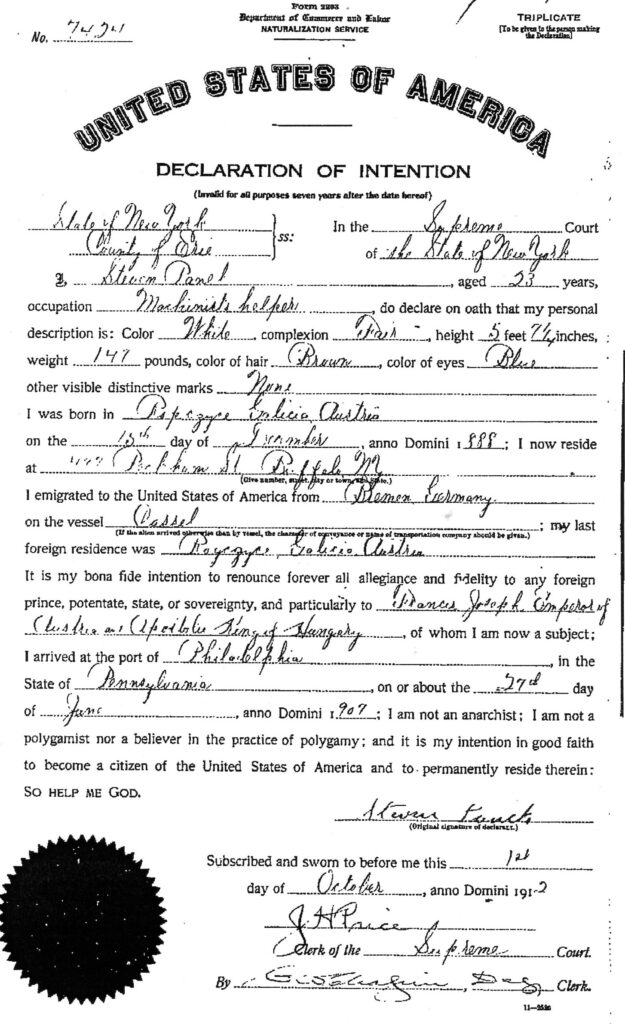 Form 2203
Department of Commerce and Labor
NATURALIZATION SERVICE
No. 7424
TRIPLICATE
[To be given to the person making the Declaration]
UNITED STATES OF AMERICA
DECLARATION OF INTENTION
(Invalid for all purposes seven years after the date hereof)
State of New York
County of Erie
ss:
In the Supreme Court
of the State of New York
I, Steven Panek, aged 23 years,
occupation Machinists helper, do declare on oath that my personal
description is: Color White, complexion Fair, height 5 feet 7½ inches,
weight 147 pounds, color of hair Brown, color of eyes Blue
other visible distinctive marks None
I was born in Ropczyce Galicia Austria
on the 15th day of December, anno Domini 1888; I now reside
at Peckham St. Buffalo NY
(Give number, street, city or town, and State.)
I emigrated to the United States of America from Bremen Germany
on the vessel Cassel; my last
(If the alien arrived otherwise than by vessel, the character of conveyance or name of transportation company should be given.)
foreign residence was Galicia Austria
It is my bona fide intention to renounce forever all allegiance and fidelity to any foreign
prince, potentate, state, or sovereignty, and particularly to Francis Joseph Emperor of
Austria and Apostolic King of Hungary, of whom I am now a subject;
I arrived at the port of Philadelphia, in the
State of Pennsylvania, on or about the 27d day
of June, anno Domini 1907; I am not an anarchist; I am not a
polygamist nor a believer in the practice of polygamy; and it is my intention in good faith
to become a citizen of the United States of America and to permanently reside therein:
SO HELP ME GOD.
Steven
(Original signature of declarant.)
Subscribed and sworn to before me this 1st
day of October, anno Domini 1912
J H Price
Clerk of the Supreme Court.
By Clerk.
11—2526